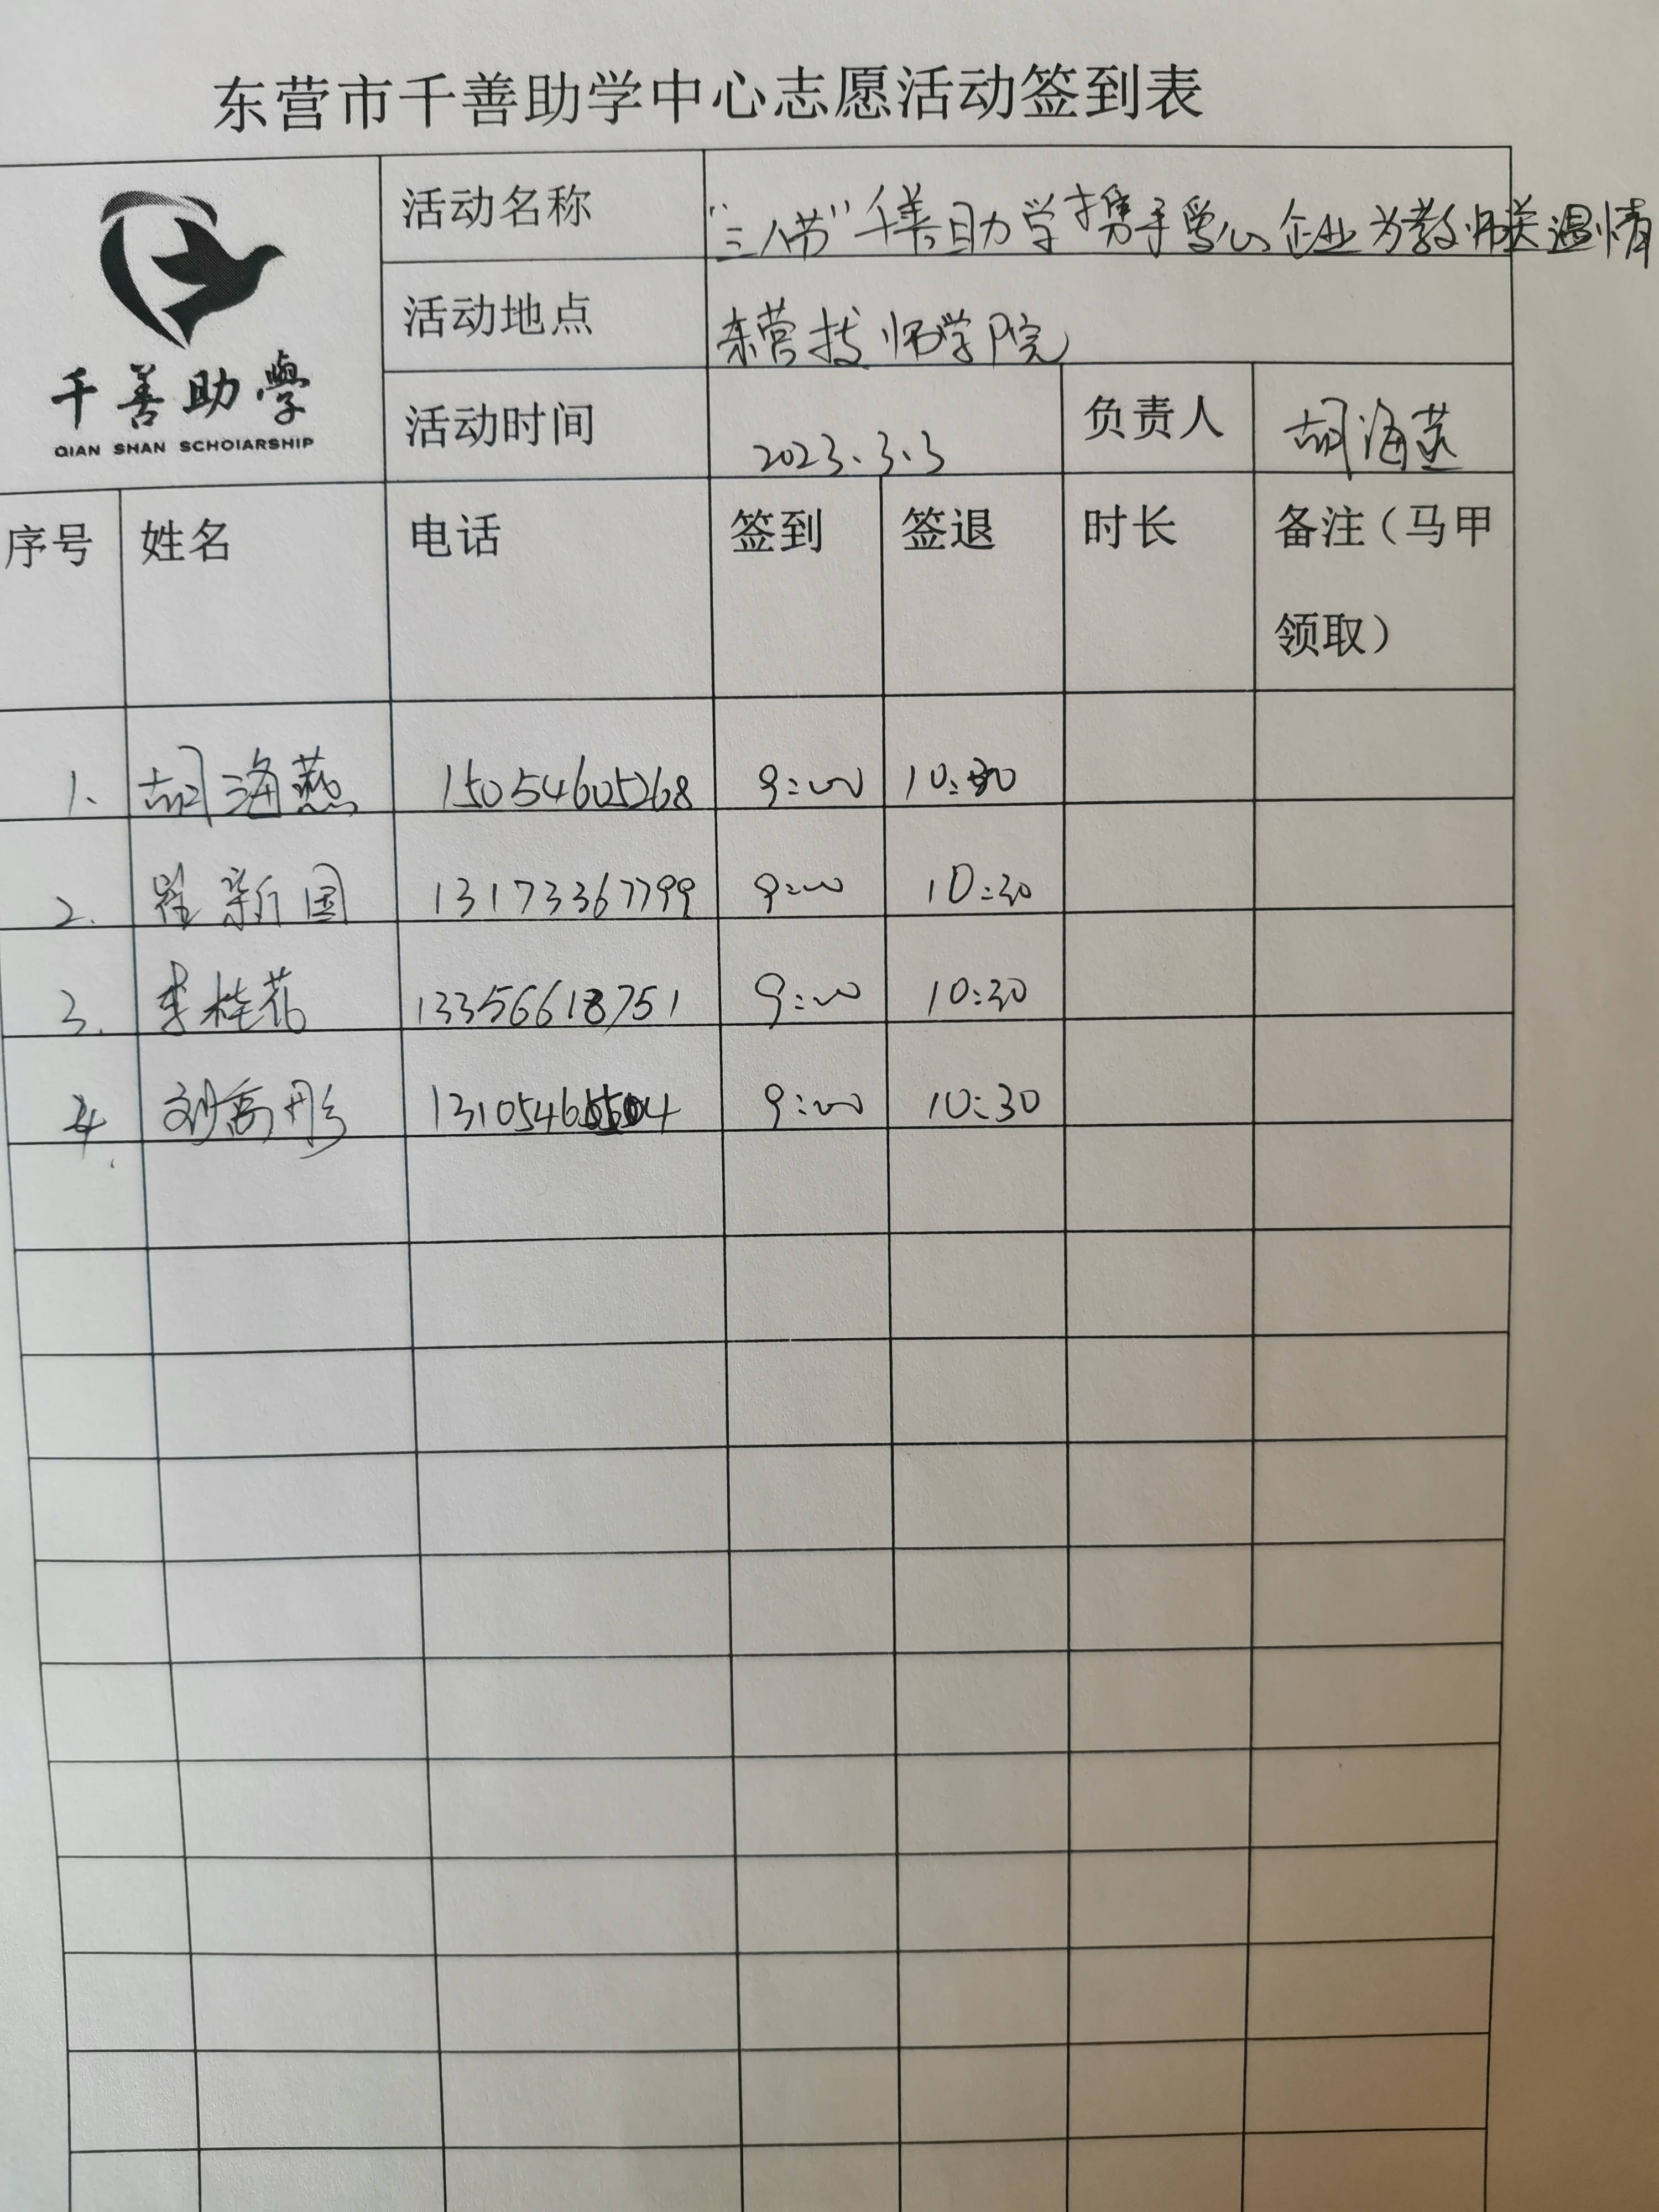 东营市千善助学中心志愿活动签到表
千善助學
QIAN SHAN SCHOlARSHIP
活动名称 "三八节"千善助学携手爱心企业为教师送温情
活动地点 东营技师学院
活动时间 2023.3.3 负责人 胡海燕
序号 姓名 电话 签到 签退 时长 备注（马甲
领取）
1. 胡海燕 15054605268 9:00 10:30
2. 崔新国 13173367799 9:00 10:30
3. 李桂花 13356618751 9:00 10:30
4. 刘高彤 9:00 10:30